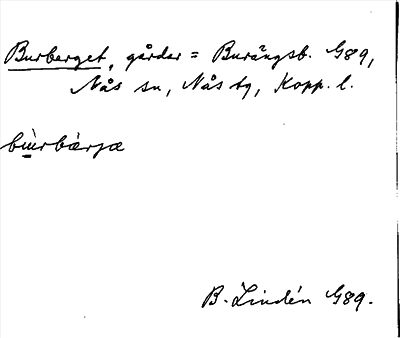 Burberget, gårdar = Burängsb. G89,
Nås sn, Nås tg, Kopp. l.
bùrbærjæ
B. Lindén G89.